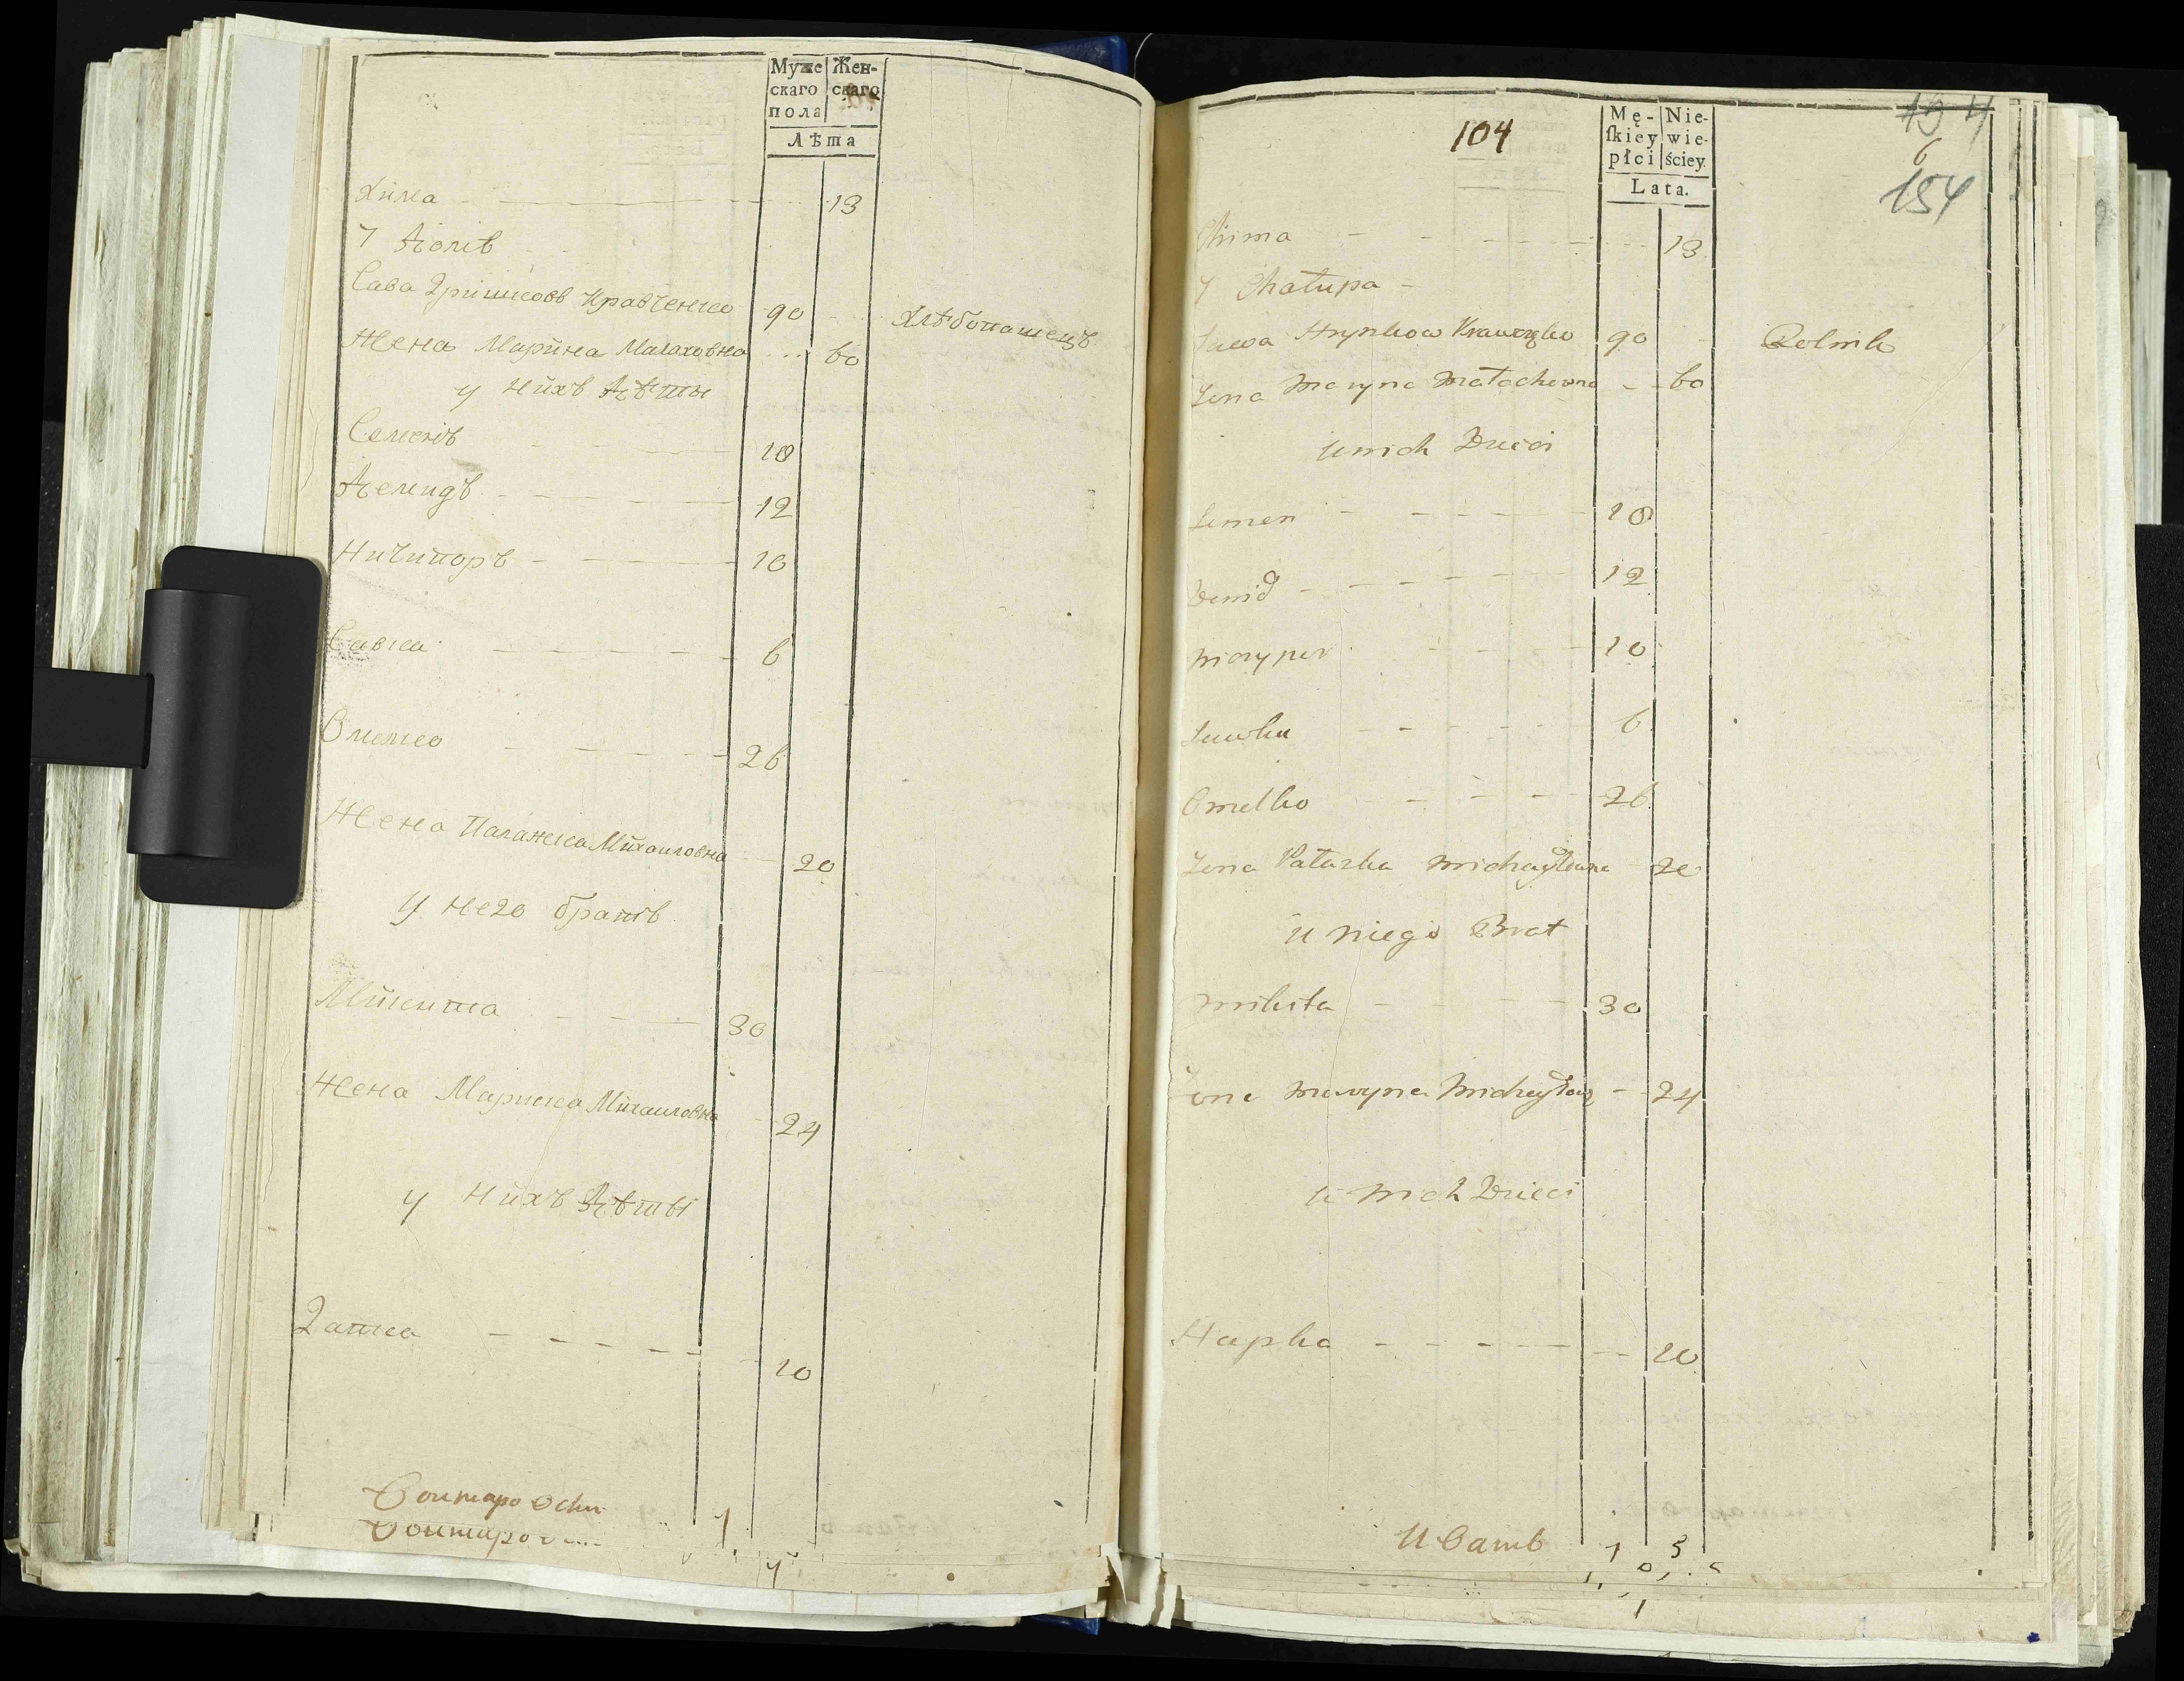 Муже Жен-
скаго скаго
пола
Лѣта
Хима 13
7 Домъ
Сава Гришковъ Кравченко 90 Хлѣбопашецъ
Жена Марина Малаховна 60
у нихъ Дѣти
Семенъ 18
Демидъ 12
Ничипоръ 10
Савка 6
Омелко 26
Жена Палажка Михаиловна 20
У него братъ
Микита 30
Жена Маринка Михаиловна 24
у нихъ Дѣти
Гапка 10
1
104
Mę- Nie-
skiey wie-
płci ściey
Lata.
6
154
Chima 13
7 Chałupa
Sawa Hryszkow Krawczęko 90 Rolnik
Żona Maryna Małachowna 60
u nich Dzieci
Semen 18
Demid 12
Niczypor 10
Sawka 6
Omelko 26
Żona Pałazka Michayłowna 20
u niego Brat
Mikita 30
Żona Maryna Michayłow 24
u nich Dzieci
Hapka 10